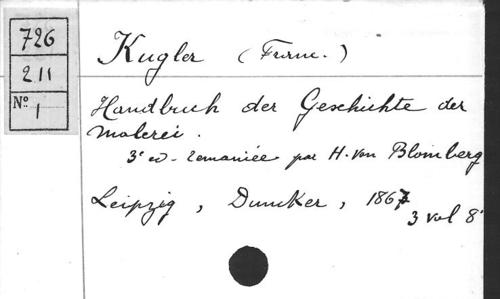 726
211
Nº 1
Kugler (Franc.)
Handbuch der Geschichte der
Malerei.
3e ed - remaniée par H. von Blomberg
Leipzig, Duncker, 1867
3 vol 8º